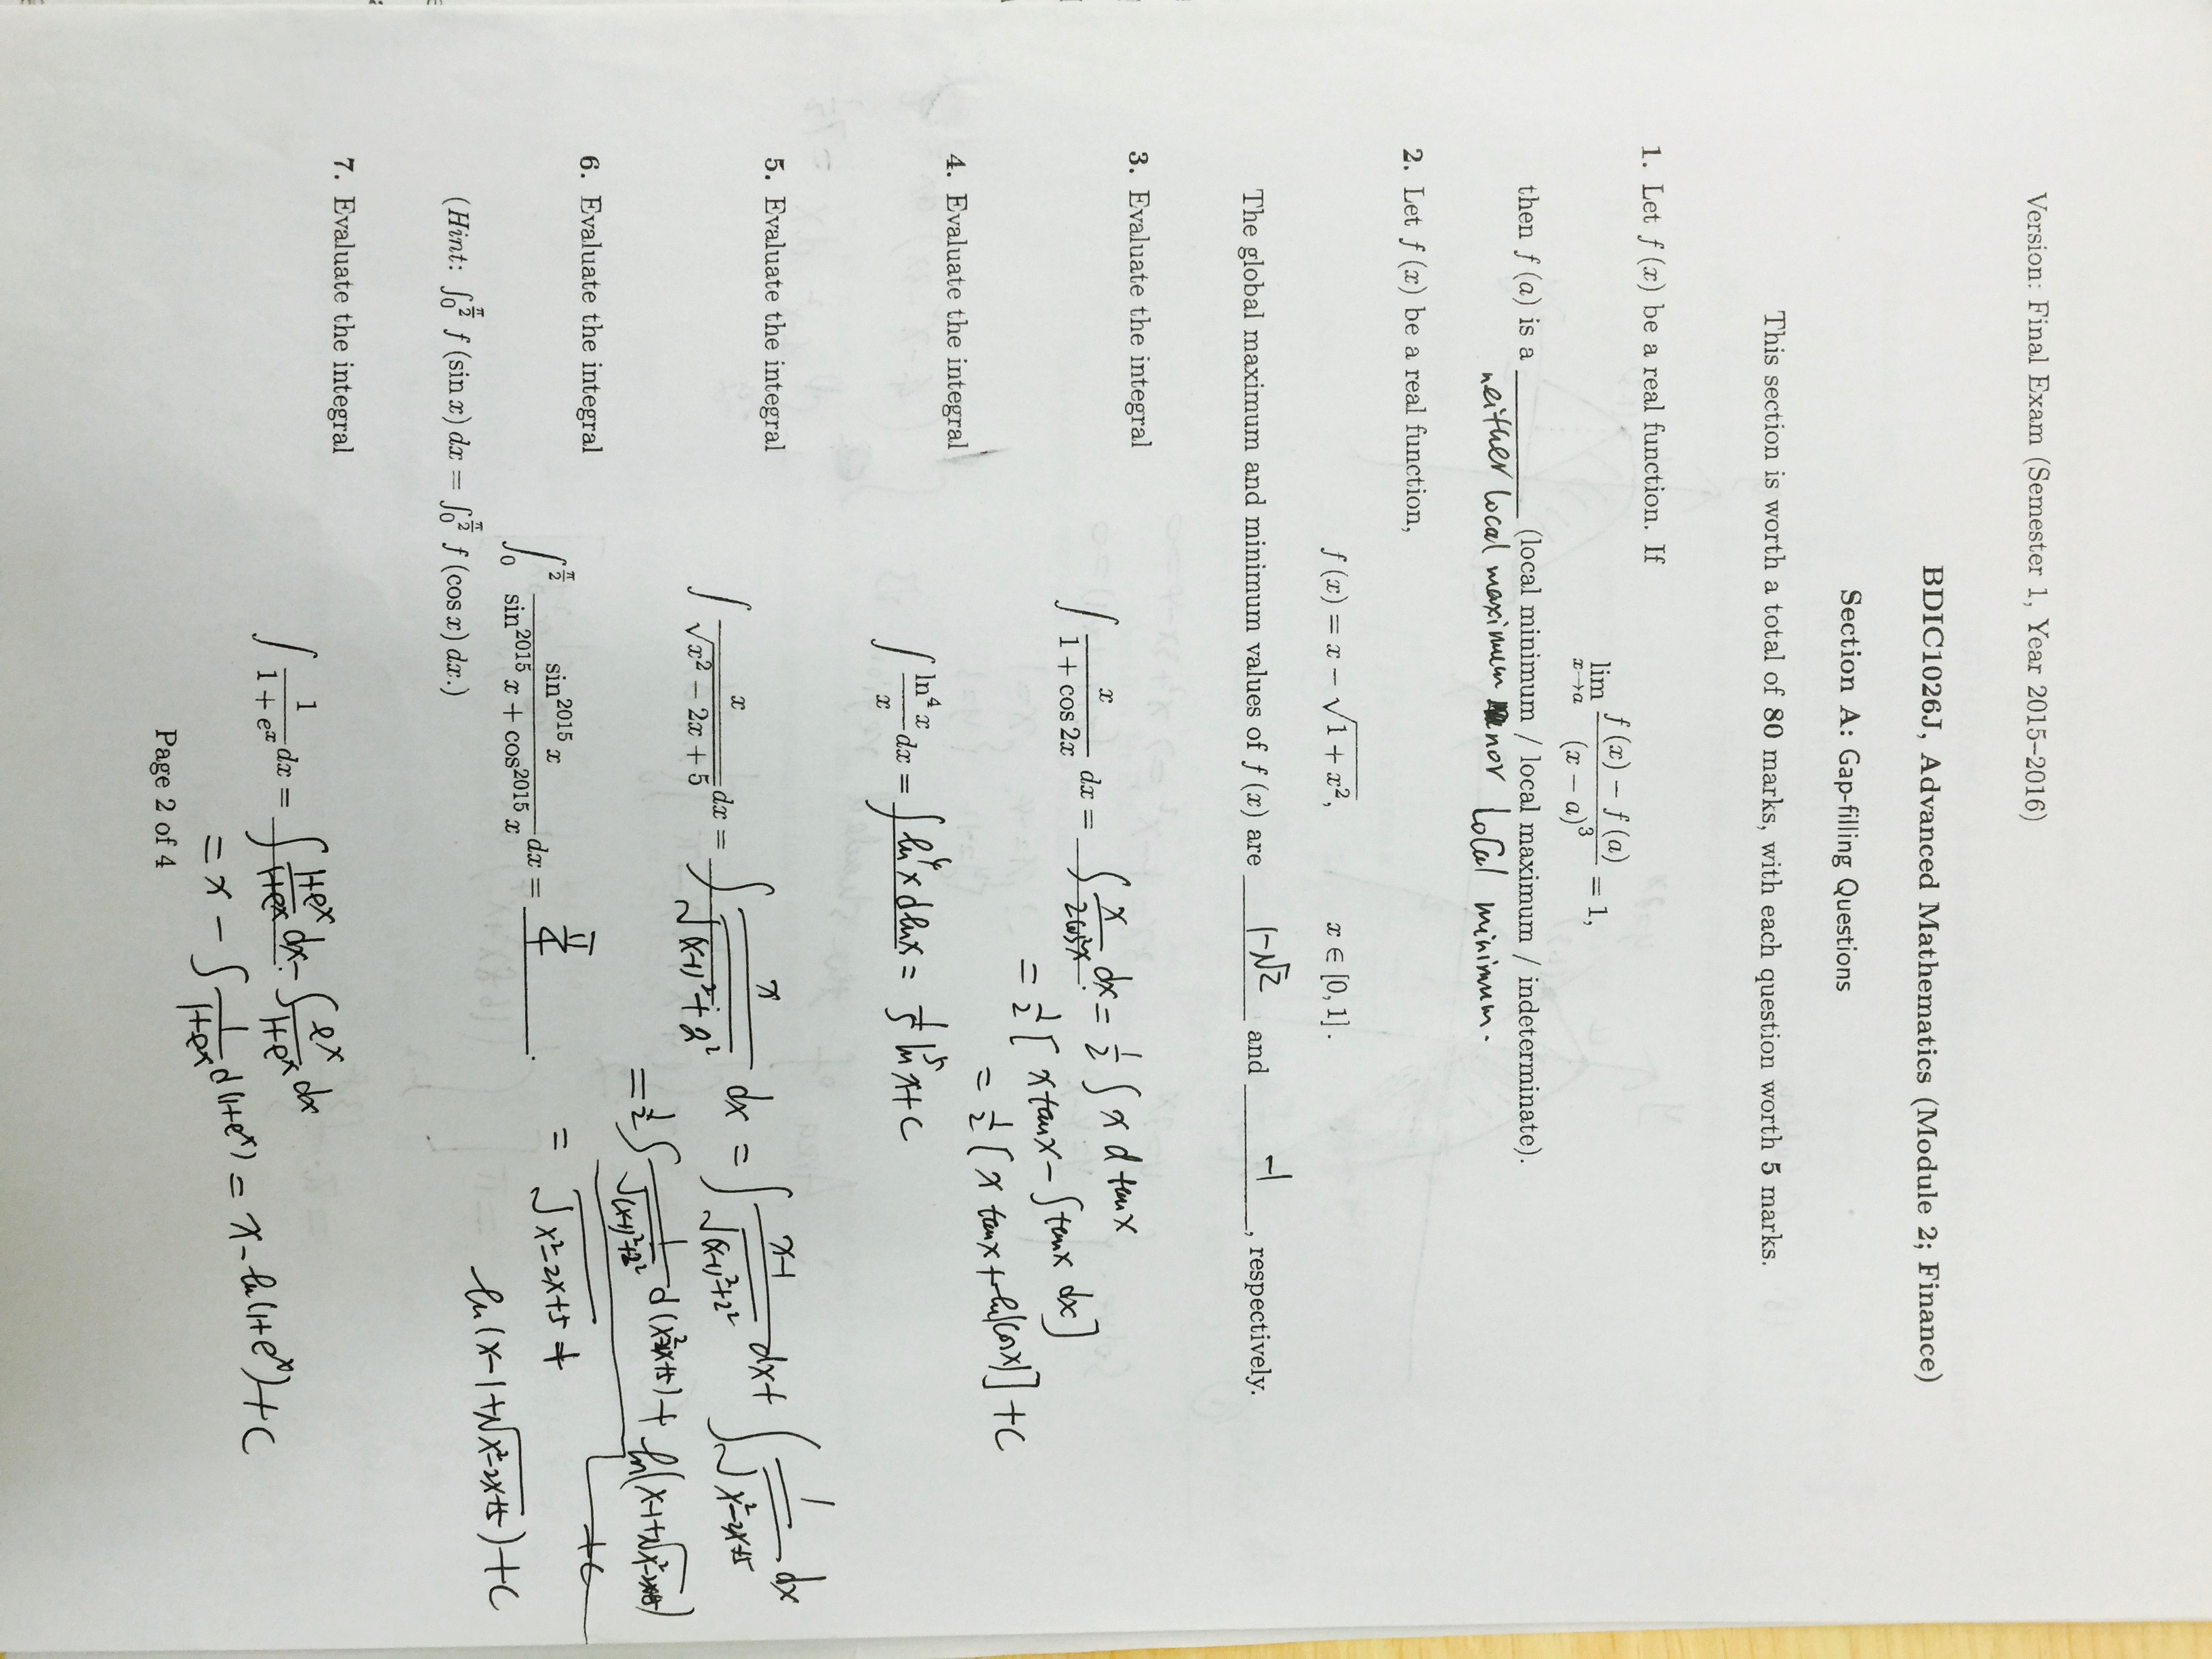 Version: Final Exam (Semester 1, Year 2015–2016)
BDIC1026J, Advanced Mathematics (Module 2; Finance)
Section A: Gap-filling Questions
This section is worth a total of 80 marks, with each question worth 5 marks.
1. Let f (x) be a real function. If
lim x→a (f (x) − f (a))/(x − a)³ = 1,
then f (a) is a ______ (local minimum / local maximum / indeterminate).
neither local maximum nor local minimum.
2. Let f (x) be a real function,
f (x) = x − √(1 + x²), x ∈ [0, 1].
The global maximum and minimum values of f (x) are 1-√2 and -1, respectively.
3. Evaluate the integral
∫ x/(1 + cos 2x) dx = ∫ x/(2cos²x) dx = 1/2 ∫ x d tanx
= 1/2 [ x tanx - ∫ tanx dx ]
= 1/2 [ x tanx + ln|cosx| ] + C
4. Evaluate the integral
∫ ln⁴ x/x dx = ∫ ln⁴ x d lnx = 1/5 ln⁵ x + C
5. Evaluate the integral
∫ x/√(x² − 2x + 5) dx = ∫ x/√((x-1)²+2²) dx = ∫ (x-1)/√((x-1)²+2²) dx + ∫ 1/√(x²-2x+5) dx
= 1/2 ∫ 1/√((x-1)²+2²) d(x²-2x+5) + ln(x-1+√(x²-2x+5)) + C
= √(x²-2x+5) +
ln(x-1+√(x²-2x+5)) + C
6. Evaluate the integral
∫₀^(π/2) sin²⁰¹⁵ x/(sin²⁰¹⁵ x + cos²⁰¹⁵ x) dx = π/4.
(Hint: ∫₀^(π/2) f (sin x) dx = ∫₀^(π/2) f (cos x) dx.)
7. Evaluate the integral
∫ 1/(1 + eˣ) dx = ∫ (1+eˣ)/(1+eˣ) dx - ∫ eˣ/(1+eˣ) dx
= x - ∫ 1/(1+eˣ) d(1+eˣ) = x - ln(1+eˣ) + C
Page 2 of 4